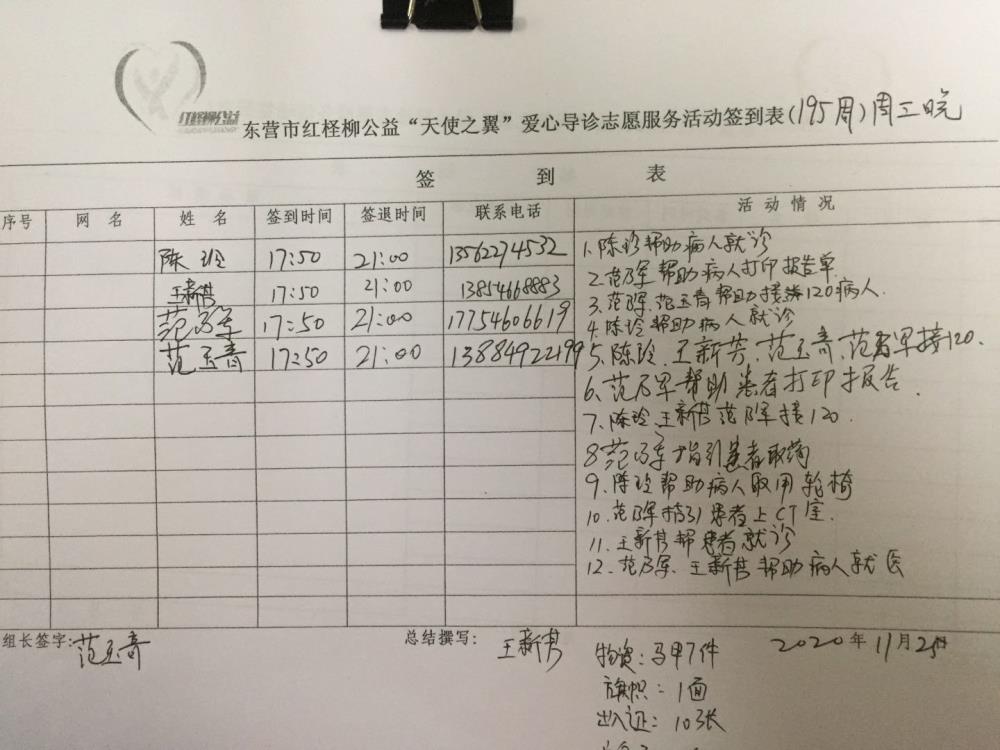 红柽柳公益
东营市红柽柳公益“天使之翼”爱心导诊志愿服务活动签到表(195周)周三晚
签 到 表
序号 网 名 姓 名 签到时间 签退时间 联系电话 活 动 情 况
陈玲 17:50 21:00 13562274532
王新芳 17:50 21:00 13854668883
范乃军 17:50 21:00 17754606619
范玉青 17:50 21:00 13884922199
1.陈玲帮助病人就诊
2.范乃军帮助病人打印报告单
3.范乃军.范玉青帮助接 120病人.
4.陈玲帮助病人就诊
5.陈玲、王新芳、范玉青、范乃军接120.
6.范乃军帮助患者打印报告.
7.陈玲、王新芳范乃军接120.
8范乃军指引患者取药
9.陈玲帮助病人取用轮椅
10.范乃军指引患者上CT室.
11.王新芳帮患者就诊
12.范乃军、王新芳帮助病人就医
组长签字:范玉青 总结撰写:王新芳 2020年11月25日
物资:马甲7件
旗帜:1面
出入证:10张